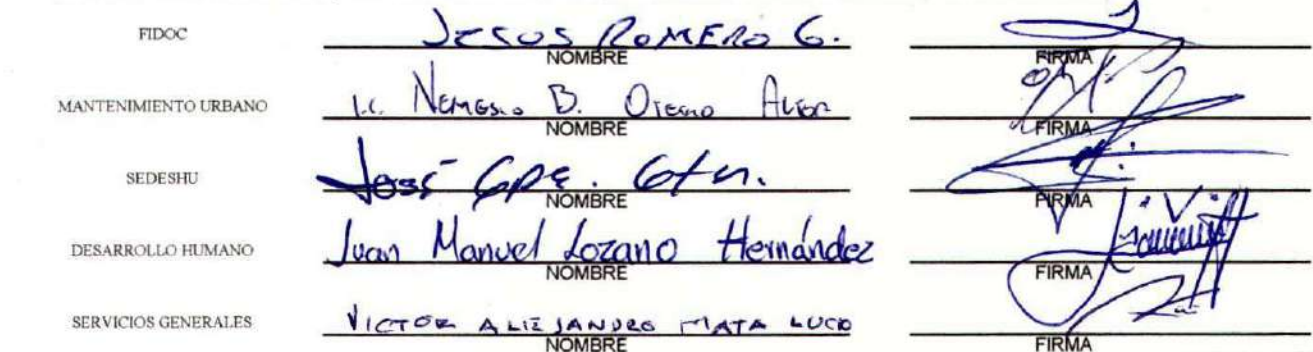 FIDOC Jesus Romero G.
NOMBRE FIRMA
MANTENIMIENTO URBANO I.C. Nemesio B. Otero
NOMBRE FIRMA
SEDESHU José Gpe. Gtn.
NOMBRE FIRMA
DESARROLLO HUMANO Juan Manuel Lozano Hernández
NOMBRE FIRMA
SERVICIOS GENERALES VICTOR ALEJANDRO MATA LUCIO
NOMBRE FIRMA